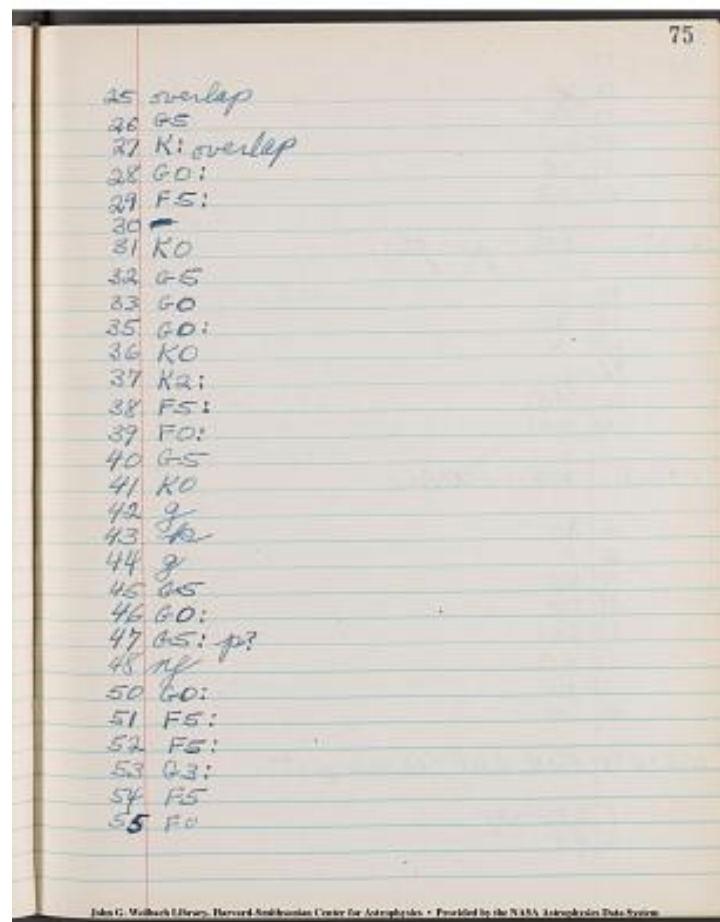 75
25 overlap
26 G5
27 K: overlap
28 G0:
29 F5:
30 –
31 K0
32 G5
33 G0
35 G0:
36 K0
37 K2:
38 F5:
39 F0:
40 G5
41 K0
42 g
43 k
44 g
45 G5
46 G0:
47 G5: p?
48 nf
50 G0:
51 F5:
52 F5:
53 G3:
54 F5
55 F0
John G. Wolbach Library, Harvard-Smithsonian Center for Astrophysics • Provided by the NASA Astrophysics Data System